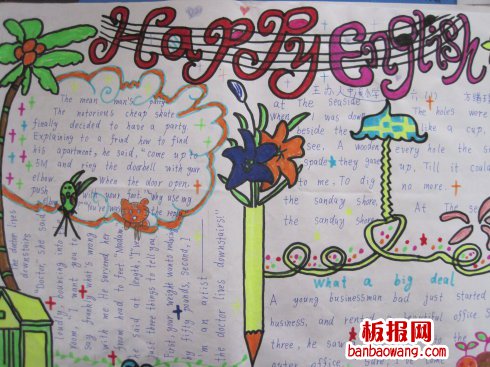 Happy English
The mean man's party
The notorious cheap skate
finally decided to have a party.
Explaining to a friend how to find
his apartment, he said, "come up to
5M and ring the doorbell with your
elbow. When the door open,
push with your foot." "Why use my
"You're
the reply
at The seaside
when I was down
beside the sea. A wooden
spade they gave
to me, To dig
the sanday shore,
the sanday shore.
The holes were
like a cup,
every hole the sea
up, Till it could
no more.
At The se
What a big deal
A young businessman had just started
business, and rent beautiful office
three, he saw
outer office. Sure
the doctor lives
downstairs
"Doctor," she said
loudly, bouncing into
room, "I want you to
say frankly what's wrong
with me." He surveyed her
from head to feet. "Madam,"
he said at length, "I've
just three things to tell you.
First, your weight wants reducing
by fifty pounds, second, I
m an artist
the doctor lives downstairs!"
板报网
banbaowang.com